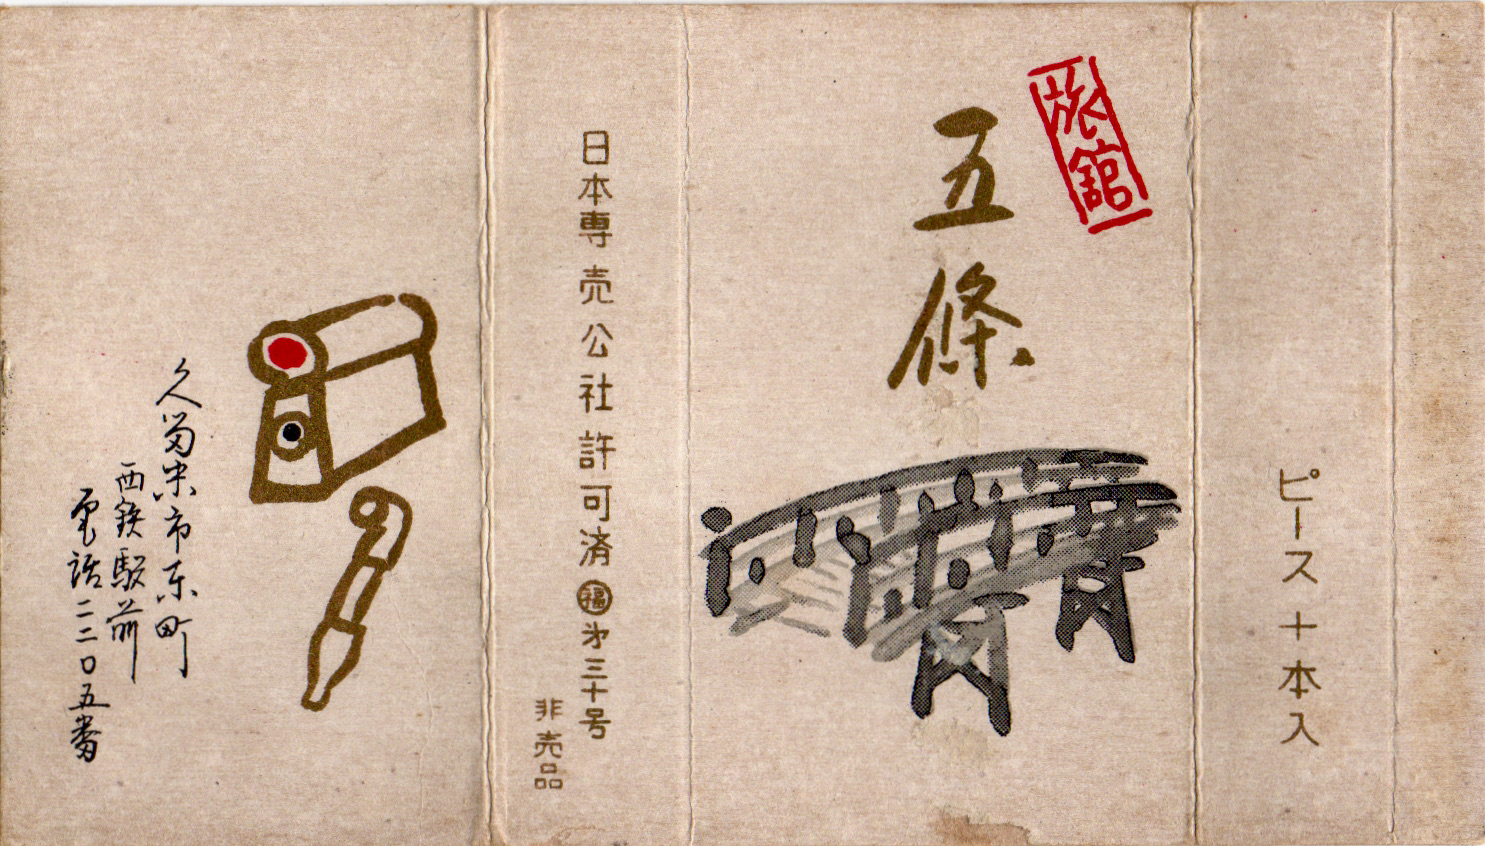 旅館
五條
ピース十本入
日本専売公社許可済㊞福㊞第三十号
非売品
久留米市東町
西鉄駅前
電話二二〇五番